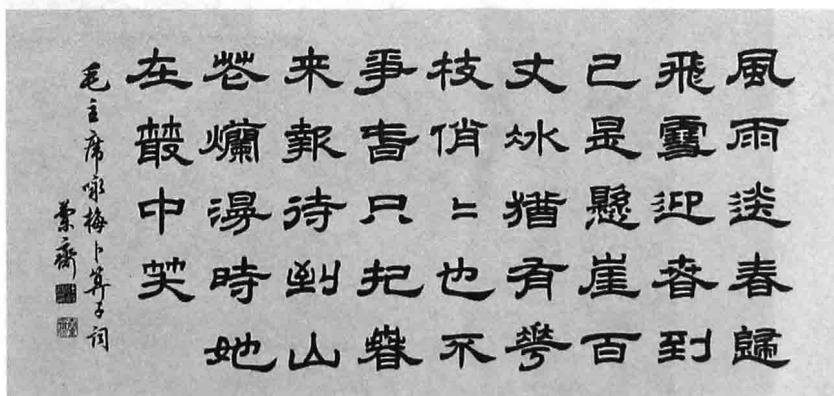 風雨送春歸
飛雪迎春到
已是懸崖百
丈冰猶有花
枝俏〻也不
爭春只把春
来報待到山
花爛漫時她
在叢中笑
毛主席咏梅卜算子詞